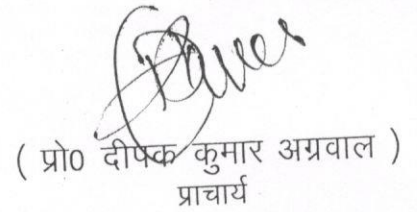 ( प्रो0 दीपक कुमार अग्रवाल )
प्राचार्य